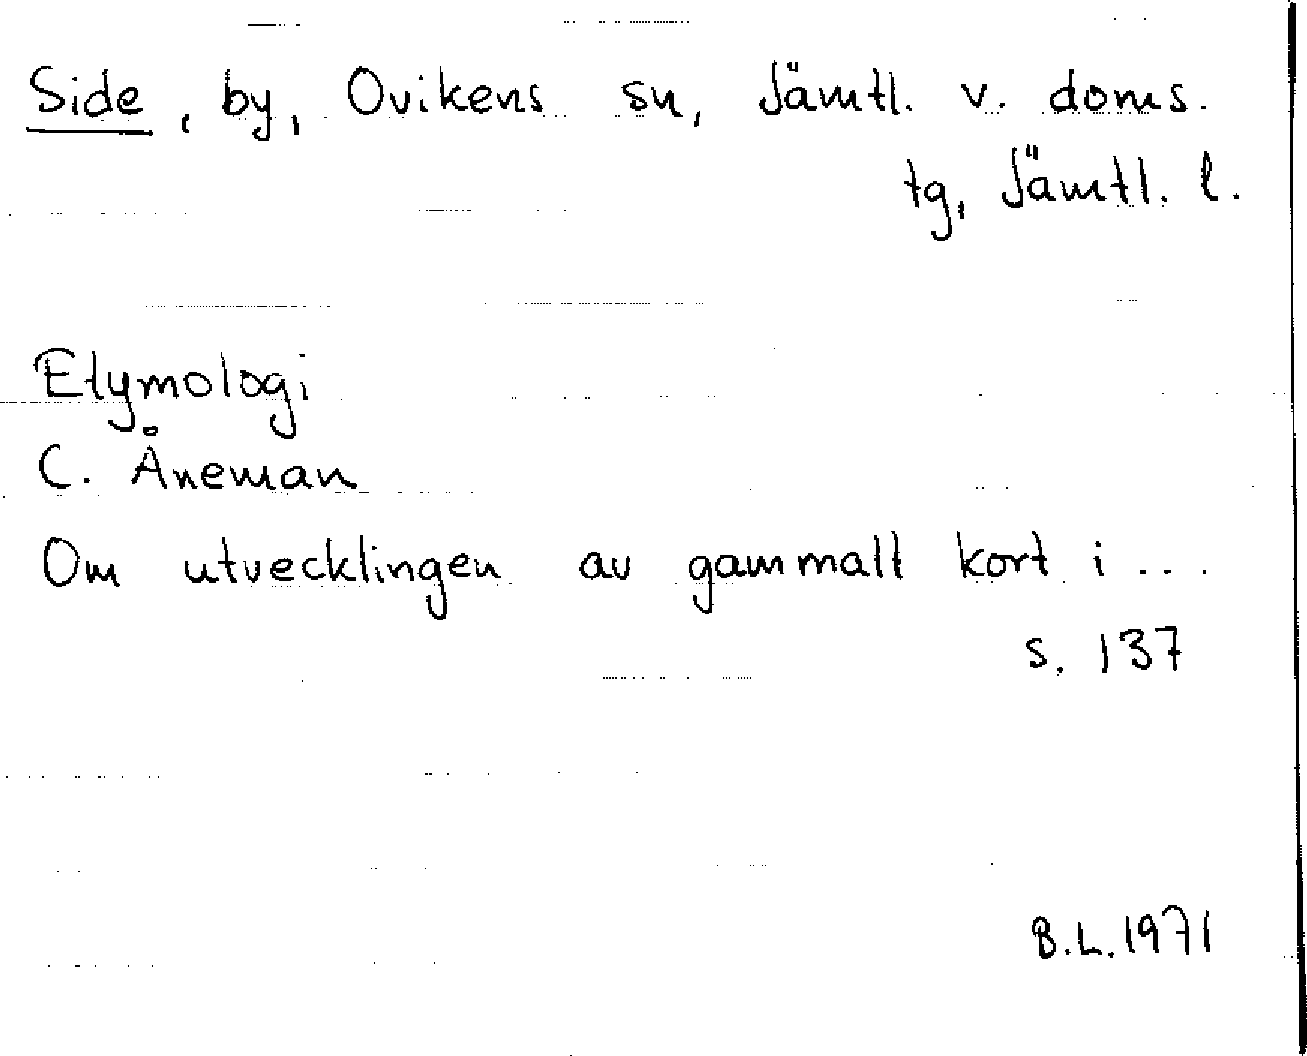 Side, by, Ovikens sn, Jämtl. v. doms.
tg, Jämtl. l.
Etymologi
C. Åneman
Om utvecklingen av gammalt kort i...
s. 137
B.L.1971